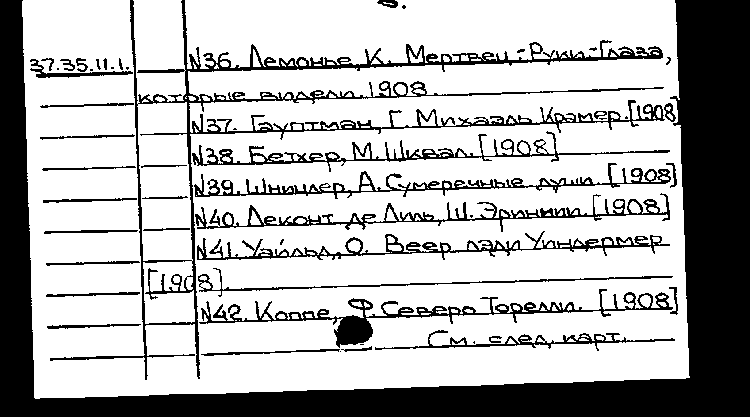 37.35.11.1. N36. Лемонье, К. Мертвец.-Руки-Глаза,
которые видели. 1908.
N37. Гауптман, Г. Михаэль Крамер. [1908]
N38. Бетхер, М. Шквал. [1908]
N39. Шницлер, А. Сумеречные души. [1908]
N40. Леконт де Лиль, Ш. Эриннии. [1908]
N41. Уайльд, О. Веер лэди Уиндермер
[1908].
N42. Коппе, Ф. Северо Торелли. [1908]
См. след. карт.